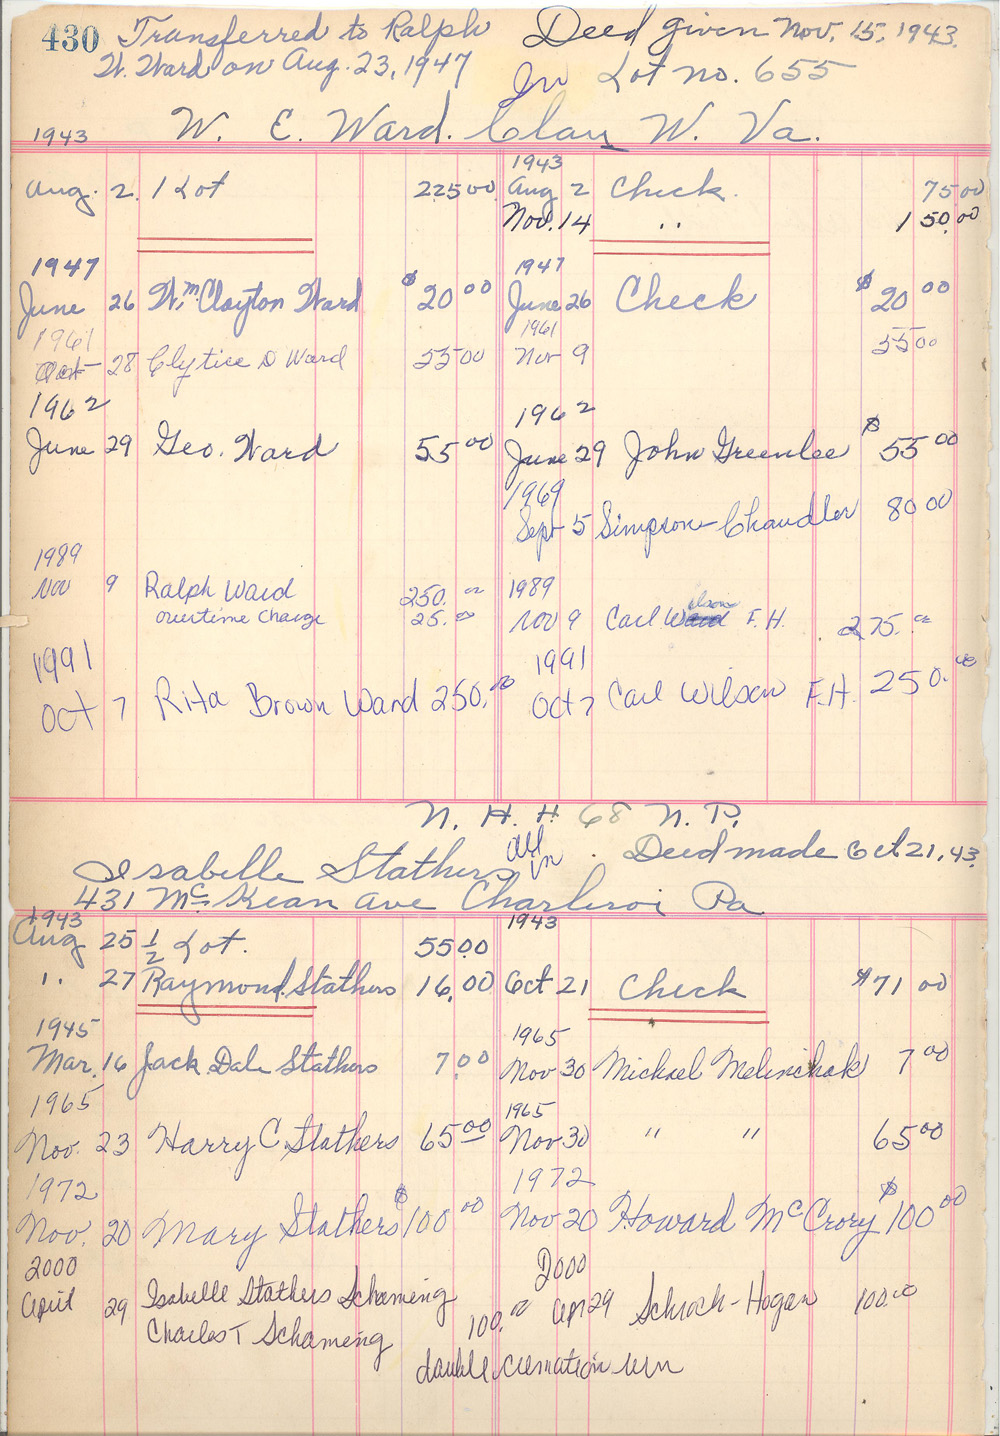 430 Transferred to Ralph Deed given Nov. 15, 1943.
W. Ward on Aug. 23, 1947 In Lot no. 655
1943 W. E. Ward. Clay W. Va.
1943
Aug. 2. 1 Lot 225 00 Aug 2 Check. 75 00
Nov. 14 " 150.00
1947 1947
June 26 Wm Clayton Ward $20 00 June 26 Check $20 00
1961 1961
Oct 28 Clytice D Ward 55 00 Nov 9 55 00
1962 1962
June 29 Geo. Ward 55 00 June 29 John Greenlee $55 00
1969
Sept 5 Simpson-Chandler 80 00
1989 1989
Nov 9 Ralph Ward 250. 00
overtime Charge 25. 00 Nov 9 Carl Wilson F.H. 275. 00
1991 1991
Oct 7 Rita Brown Ward 250. 00 Oct 7 Carl Wilson F.H. 250. 00
N. H. H 68 N. P.
Isabelle Stathers All in. Deed made Oct 21, 43
431 McKean Ave Charleroi Pa
1943 1943
Aug 25 1/2 Lot. 55.00
" 27 Raymond Stathers 16.00 Oct 21 Check $71 00
1945 1965
Mar. 16 Jack Dale Stathers 7.00 Nov 30 Michael Melenchak 7 00
1965 1965
Nov. 23 Harry C. Stathers 65 00 Nov 30 " " 65 00
1972 1972
Nov. 20 Mary Stathers $100 00 Nov 20 Howard McCrory $100 00
2000 2000
April 29 Isabelle Stathers Schameng
Charles T Schameng 100. 00 Apr 29 Schrock-Hogan 100.00
double cremation urn